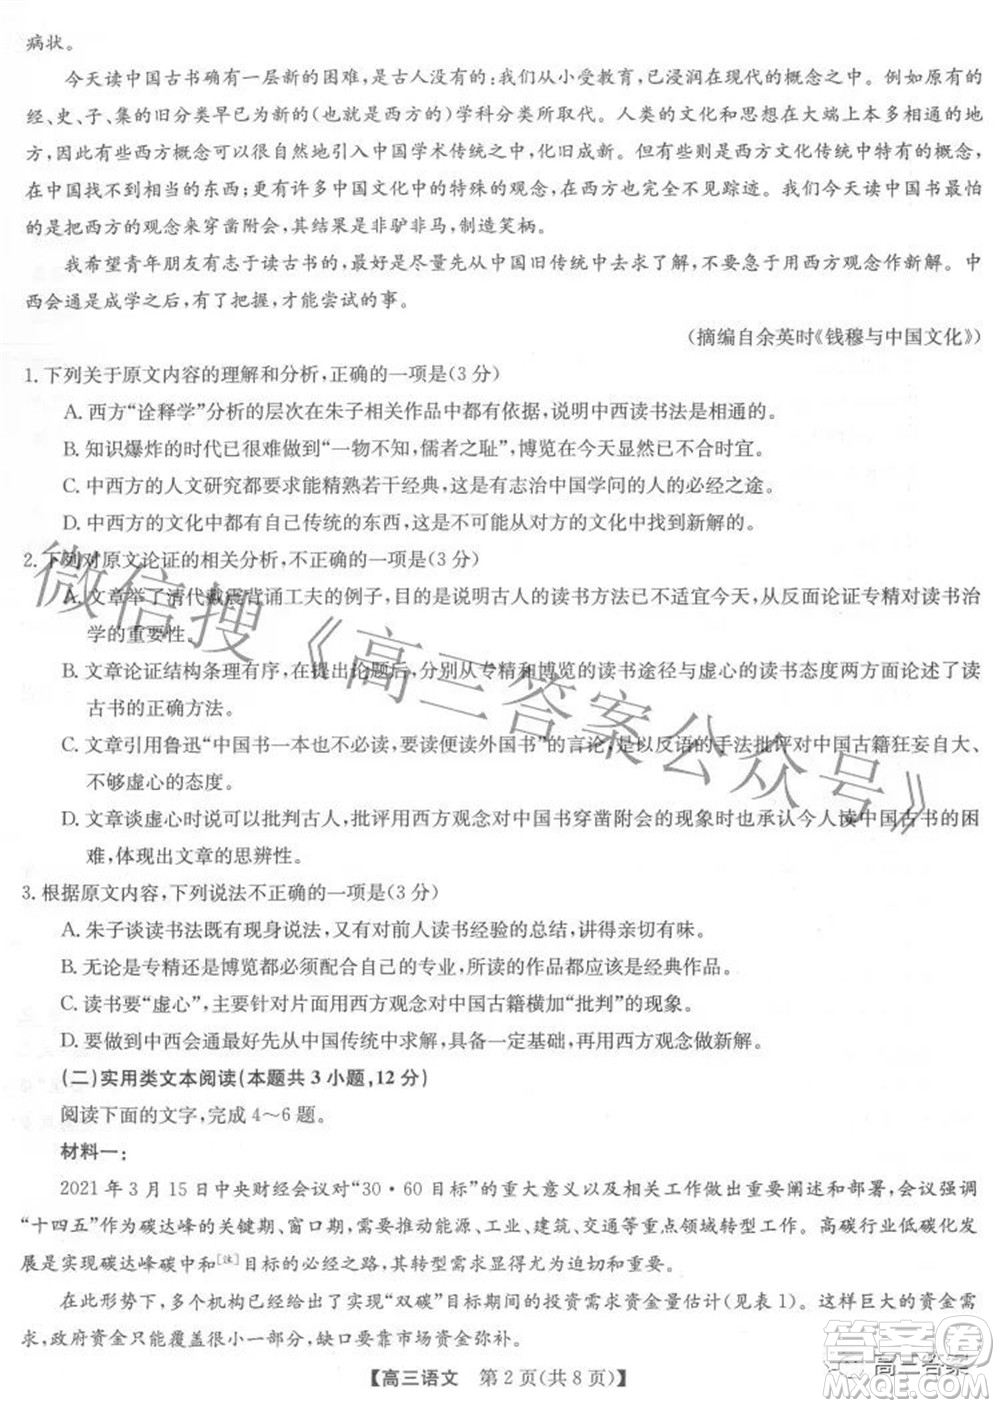 病状。
今天读中国古书确有一层新的困难,是古人没有的:我们从小受教育,已浸润在现代的概念之中。例如原有的
经、史、子、集的旧分类早已为新的(也就是西方的)学科分类所取代。人类的文化和思想在大端上本多相通的地
方,因此有些西方概念可以很自然地引入中国学术传统之中,化旧成新。但有些则是西方文化传统中特有的概念,
在中国找不到相当的东西;更有许多中国文化中的特殊的观念,在西方也完全不见踪迹。我们今天读中国书最怕
的是把西方的观念来穿凿附会,其结果是非驴非马,制造笑柄。
我希望青年朋友有志于读古书的,最好是尽量先从中国旧传统中去求了解,不要急于用西方观念作新解。中
西会通是成学之后,有了把握,才能尝试的事。
(摘编自余英时《钱穆与中国文化》)
1.下列关于原文内容的理解和分析,正确的一项是(3分)
A.西方“诠释学”分析的层次在朱子相关作品中都有依据,说明中西读书法是相通的。
B.知识爆炸的时代已很难做到“一物不知,儒者之耻”,博览在今天是不合时宜。
C.中西方的人文研究都要求能精熟若干经典,这是有志治中国学问的人的必经之途。
D.中西方的文化中都有自己传统的东西,这就不可能从对方的文化中找到新解的。
2.下列对原文论证的相关分析,不正确的一项是(3分)
A.文章举了清代戴震背诵工夫的例子,目的是说明古人的读书方法已不适宜今天,从反面论证专精对读书治
学的重要性。
B.文章论证结构条理有序,在提出论题后,分别从专精和博览的读书途径与虚心的读书态度两方面展开论述读
古书的正确方法。
C.文章引用鲁迅“中国书一本也不必读,要读便读外国书”的言论,是以反语的手法批评对中国古籍狂妄自大、
不够虚心的态度。
D.文章谈虚心时又说可以批判古人,批评用西方观念对中国书穿凿附会的现象时也承认今人读中国古书的困
难,体现出文章的思辨性。
3.根据原文内容,下列说法不正确的一项是(3分)
A.朱子谈读书法都有现身说法,也就有对读书经验的总结,讲得亲切有味。
B.无论是专精还是博览都必须结合自己的专业,所读的作品都应该是经典作品。
C.读书要“虚心”,主要针对片面地用西方观念对中国古籍横加“批判”的现象。
D.要做到中西会通最好先从中国传统中求了解,具备一定学识基础才有可能。
(二)实用类文本阅读(本题共3小题,12分)
阅读下面的文字,完成4～6题。
材料一:
2021年3月15日中央财经会议对“30·60目标”的重大意义以及相关工作做出重要阐述和部署,会议强调
“十四五”作为碳达峰的关键期、窗口期,需要推动能源、工业、建筑、交通等重点领域转型工作。高碳行业低碳化发
展是实现碳达峰碳中和[注]目标的必经之路,其对于转型融资的需求会显得尤为迫切和重要。
在此形势下,多个机构已经给出了实现“双碳”目标期间的投资需求资金量估计(见表1)。这样巨大的资金需
求,政府资金只能覆盖很小一部分,缺口要靠市场资金弥补。
【高三语文 第2页(共8页)】
微信搜《高三答案公众号》
答案圈
高三答案
MXQE.COM